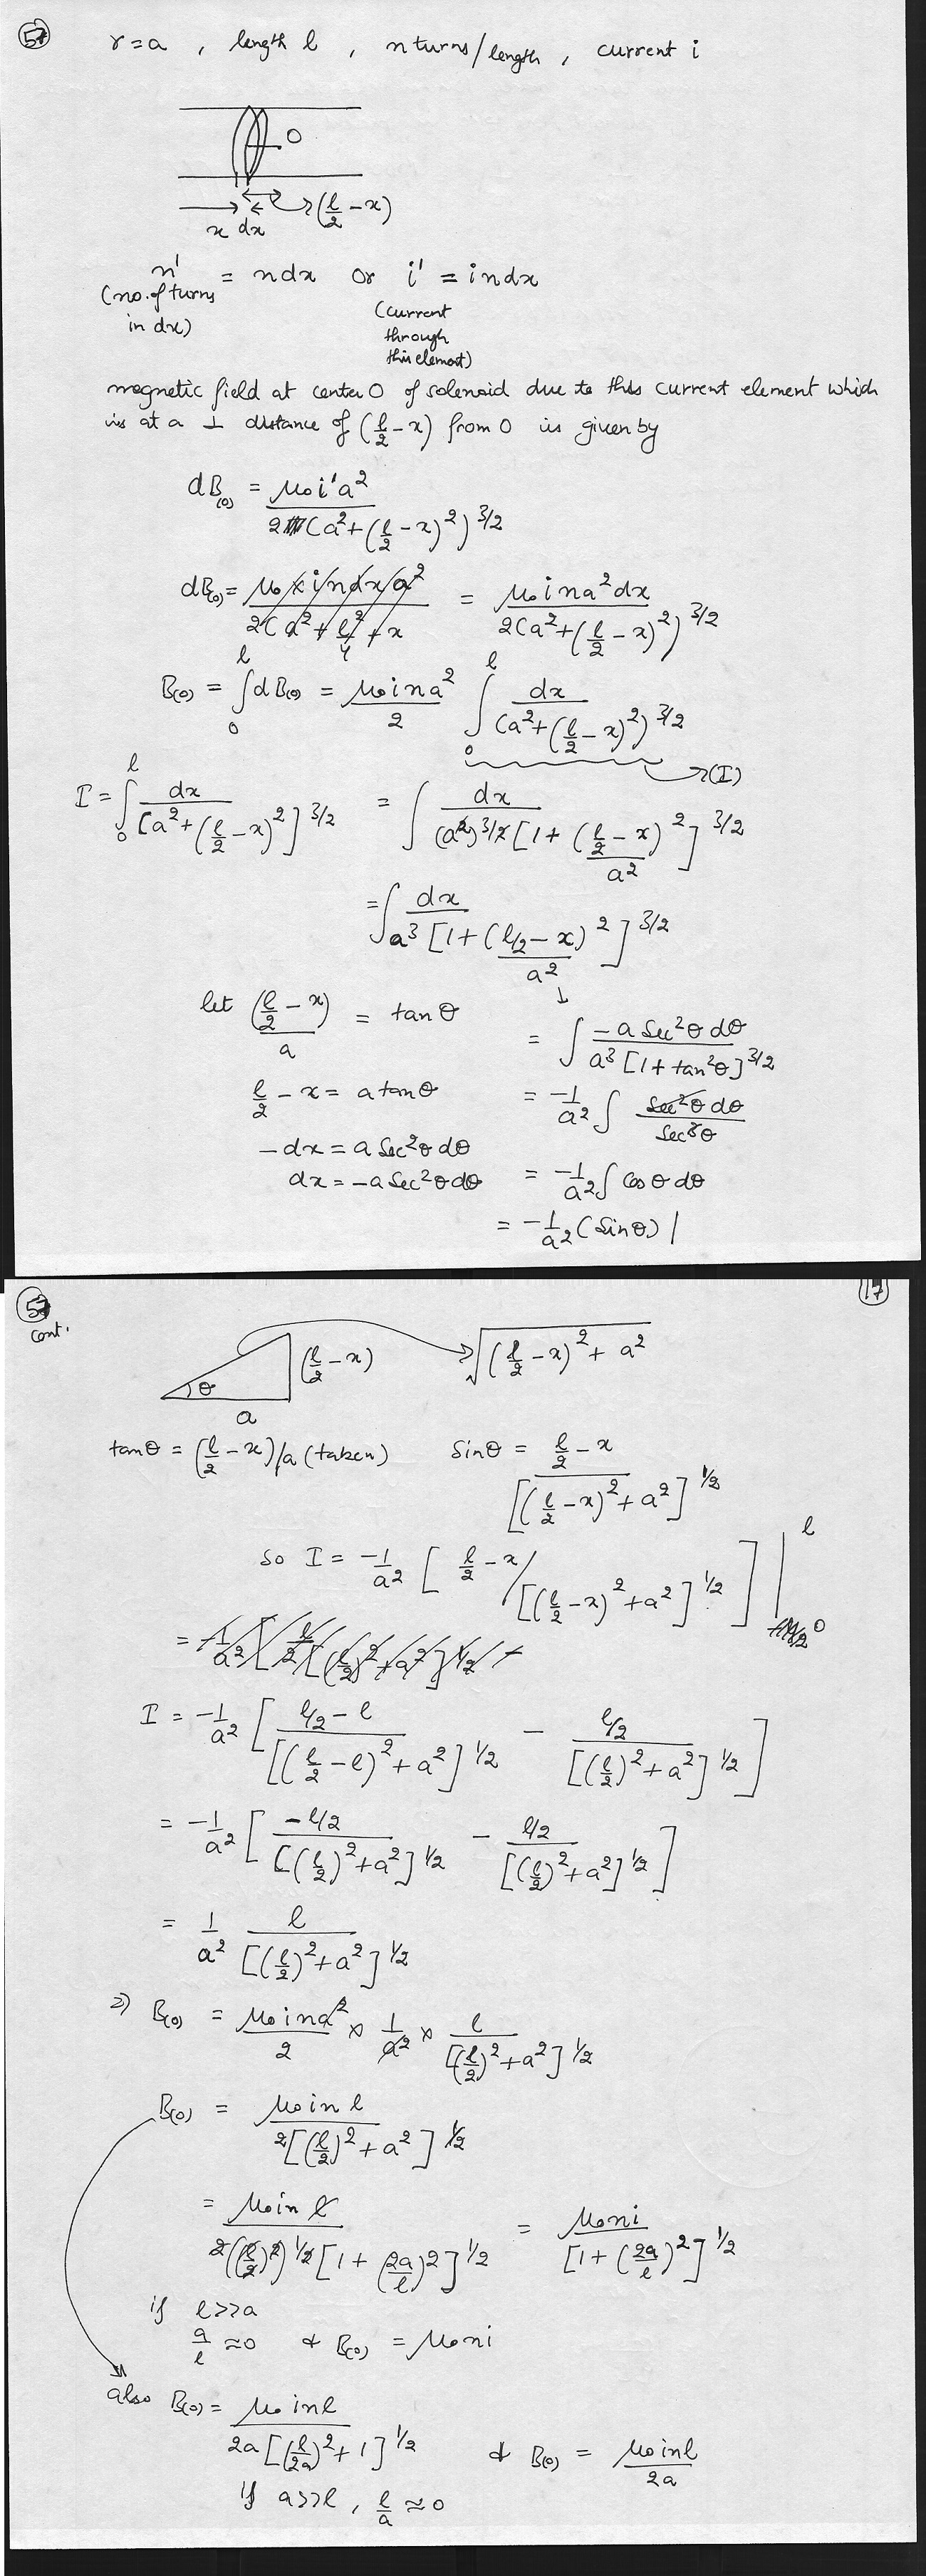 57
r=a , length l , n turns/length , current i
O
x dx (l/2 - x)
n' = ndx or i' = indx
(no. of turns in dx) (current through this element)
magnetic field at center O of solenoid due to this current element which
is at a ⊥ distance of (l/2 - x) from O is given by
dB(0) = μ₀i'a² / 2(a²+(l/2 - x)²)^3/2
dB(0) = μ₀ina²dx / 2(a²+(l/2 - x)²)^3/2
B(0) = ∫₀^l dB(0) = μ₀ina²/2 ∫₀^l dx / (a²+(l/2 - x)²)^3/2 → (I)
I = ∫₀^l dx / [a²+(l/2 - x)²]^3/2 = ∫ dx / (a²)^3/2 [1+ (l/2 - x)²/a²]^3/2
= ∫ dx / a³ [1+ (l/2 - x)²/a²]^3/2
let (l/2 - x)/a = tanθ = ∫ -a Sec²θ dθ / a³ [1+tan²θ]^3/2
l/2 - x = a tanθ = -1/a² ∫ Sec²θ dθ / Sec³θ
-dx = a Sec²θ dθ
dx = -a Sec²θ dθ = -1/a² ∫ Cosθ dθ
= -1/a² (Sinθ) |
57 cont. 17
θ a (l/2 - x) √((l/2 - x)² + a²)
tanθ = (l/2 - x)/a (taken) Sinθ = l/2 - x / [(l/2 - x)² + a²]^1/2
so I = -1/a² [ l/2 - x / [(l/2 - x)² + a²]^1/2 ] |₀^l
I = -1/a² [ l/2 - l / [(l/2 - l)² + a²]^1/2 - l/2 / [(l/2)² + a²]^1/2 ]
= -1/a² [ -l/2 / [(l/2)² + a²]^1/2 - l/2 / [(l/2)² + a²]^1/2 ]
= 1/a² l / [(l/2)² + a²]^1/2
⇒ B(0) = μ₀ina²/2 × 1/a² × l / [(l/2)² + a²]^1/2
B(0) = μ₀inl / 2[(l/2)² + a²]^1/2
= μ₀inl / 2((l/2)²)^1/2 [1+ (2a/l)²]^1/2 = μ₀ni / [1+ (2a/l)²]^1/2
if l>>a
a/l ≈0 & B(0) = μ₀ni
also B(0) = μ₀inl / 2a[(l/2a)² + 1]^1/2 & B(0) = μ₀inl / 2a
if a>>l , l/a ≈ 0